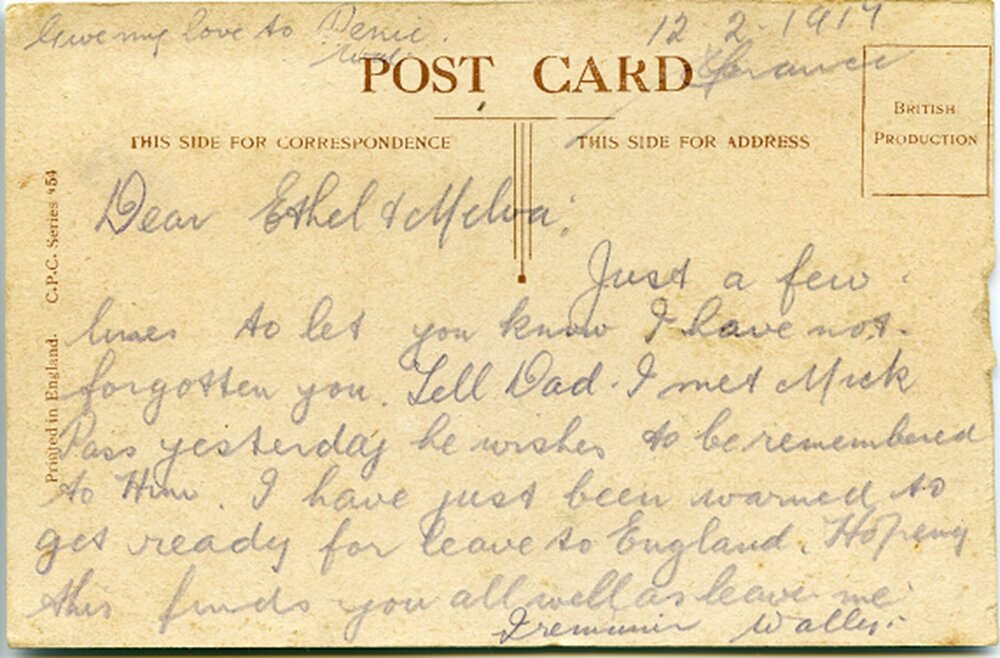 Give my love to
12-2-1917
Wally
France
POST CARD
BRITISH
PRODUCTION
THIS SIDE FOR CORRESPONDENCE
THIS SIDE FOR ADDRESS
Printed in England. C.P.C. Series 454
Dear Ethel & Melva;
Just a few
lines to let you know I have not
forgotten you. Tell Dad. I met Mick
Pass yesterday he wishes to be remembered
to Him. I have just been warned to
get ready for leave to England. Hopeing
this finds you all well as leave me.
I remain Wally.